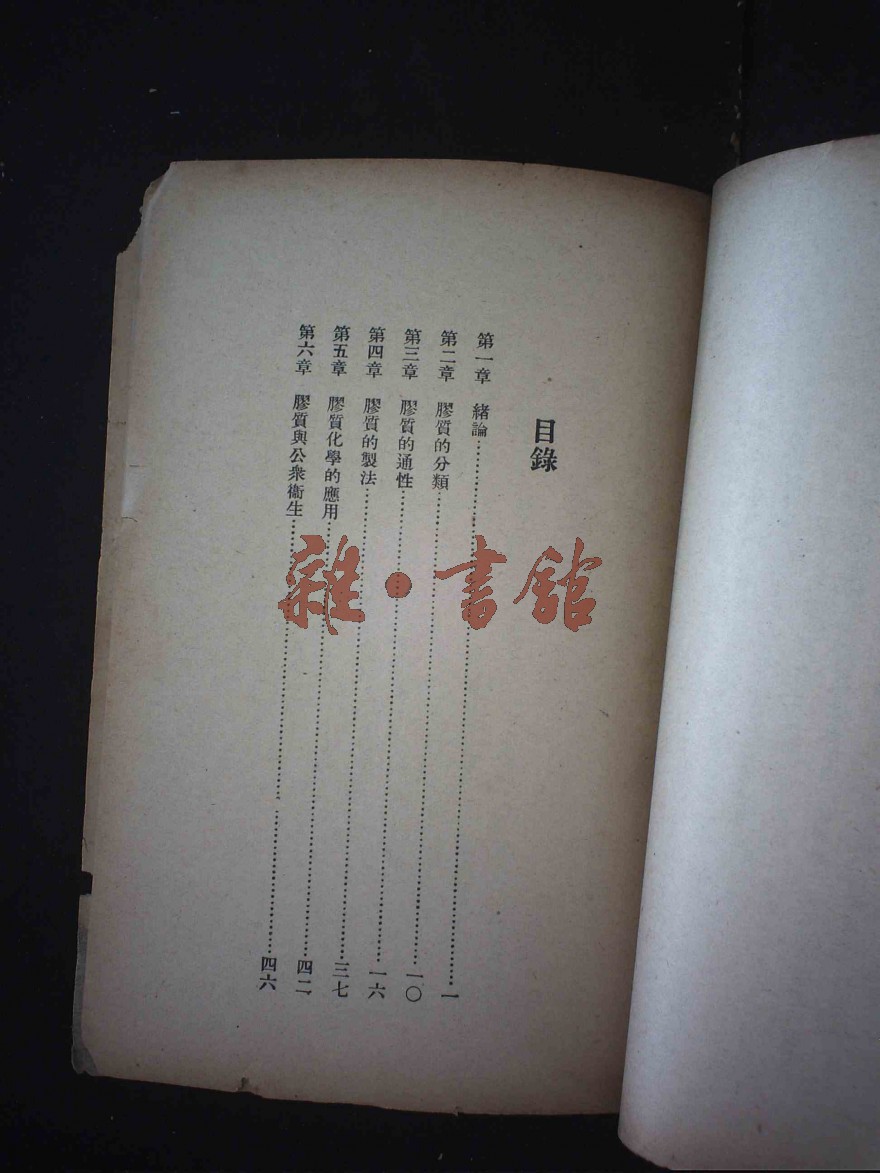 目錄
第一章 緒論……一
第二章 膠質的分類……一〇
第三章 膠質的通性……一六
第四章 膠質的製法……三七
第五章 膠質化學的應用……四二
第六章 膠質與公衆衞生……四六
雜·書館